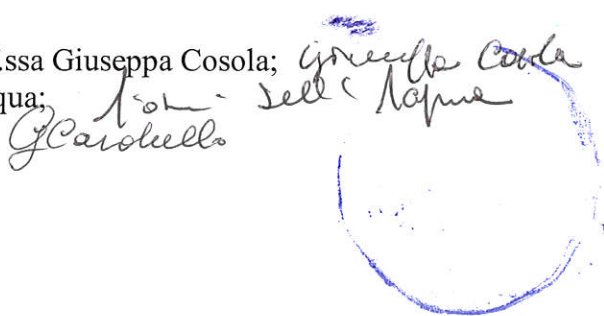 .ssa Giuseppa Cosola; Giuseppa Cosola
qua; dell'Acqua
GCarobello